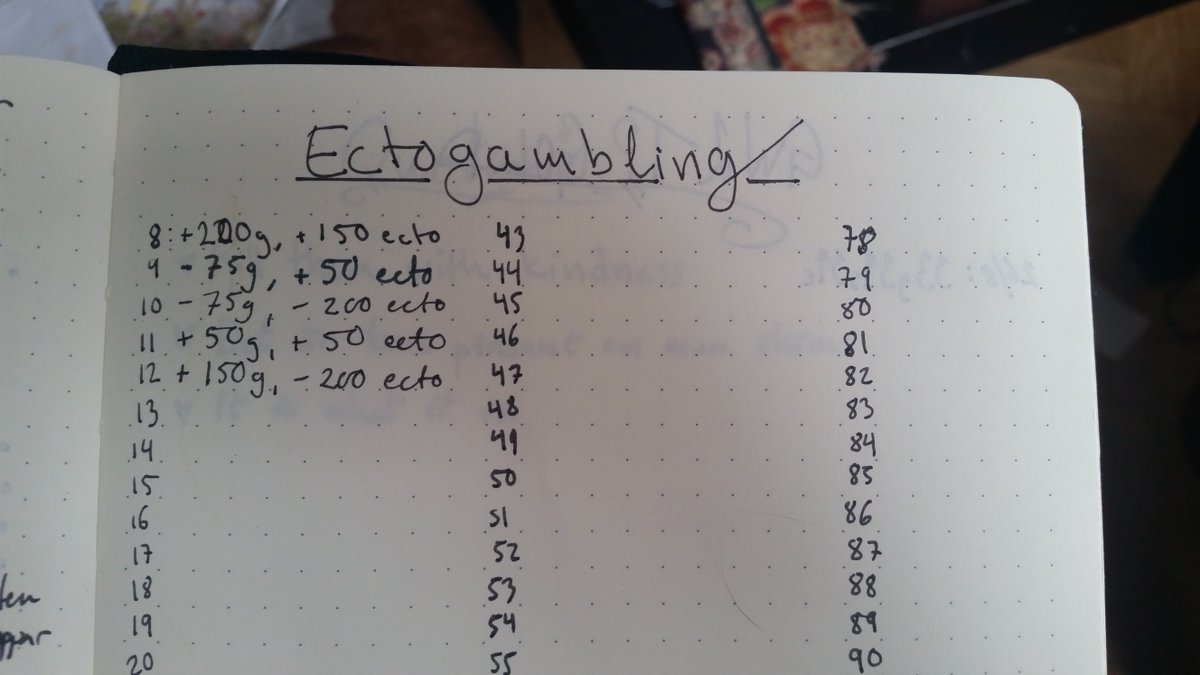 Ectogambling
8: +200g, +150 ecto 43 78
9 - 75g, + 50 ecto 44 79
10 - 75g, - 200 ecto 45 80
11 + 50g, + 50 ecto 46 81
12 + 150g, - 200 ecto 47 82
13 48 83
14 49 84
15 50 85
16 51 86
17 52 87
18 53 88
19 54 89
20 55 90